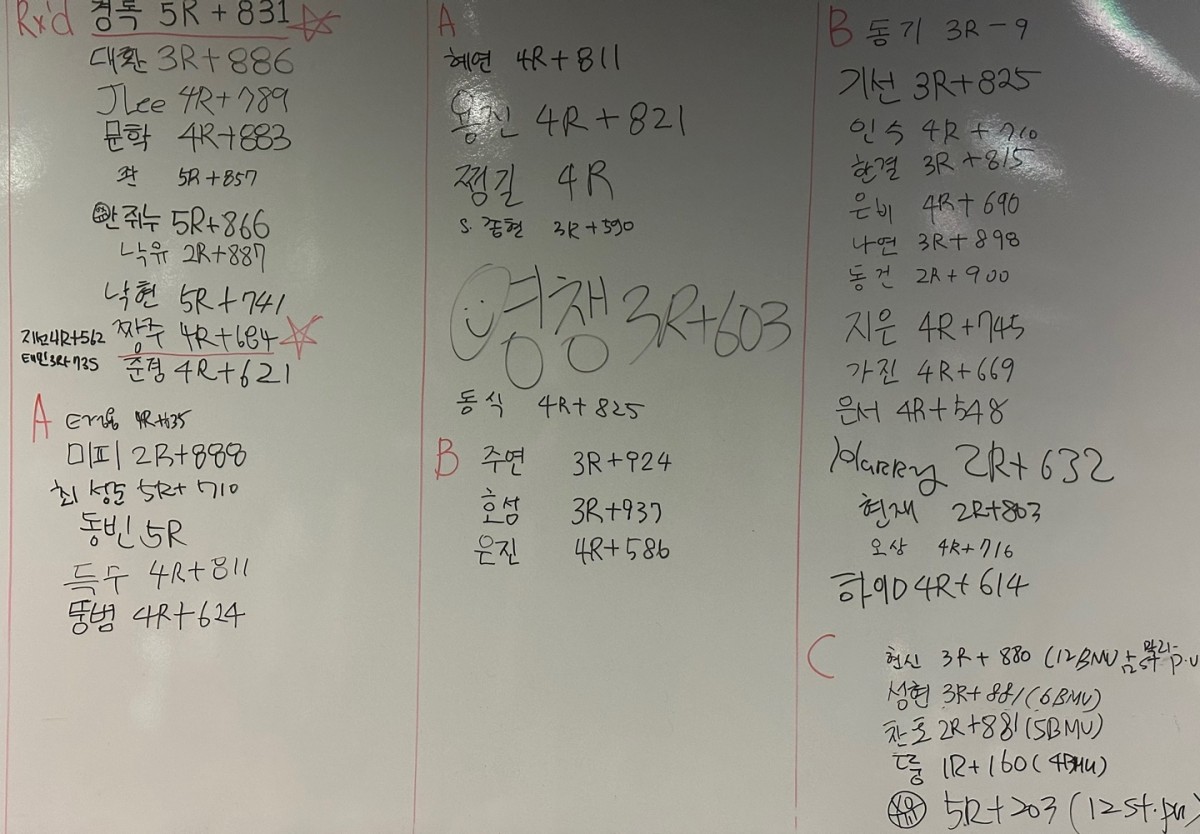 Rx'd 경록 5R + 831
대환 3R + 886
JLee 4R + 789
문학 4R+883
콴 5R + 857
안쥐누 5R+866
낙유 2R+887
낙현 5R+741
4R+562 짱주 4R+684
태민 3R+735 준경 4R+621
A 4R+635
미피 2R+888
최성도 5R+ 710
동빈 5R
득수 4R+811
뚱범 4R+624
A
혜연 4R+811
용진 4R + 821
쩡길 4R
S. 종현 3R +590
영챙 3R+603
동식 4R+825
B 주연 3R+924
호섬 3R+937
은진 4R+586
B 동기 3R - 9
기선 3R+825
인숙 4R + 710
한결 3R + 815
은비 4R+ 690
나연 3R + 898
동건 2R + 900
지은 4R+745
가진 4R+669
은서 4R+548
Harry 2R+632
현재 2R+803
오상 4R+716
하이D 4R+614
C 현신 3R + 880 (12BMU + 12 ST P.U
성현 3R+881 (6BMU)
찬호 2R+881 (5BMU)
1R+160 (4BMU)
5R+203 (12 st. pu)